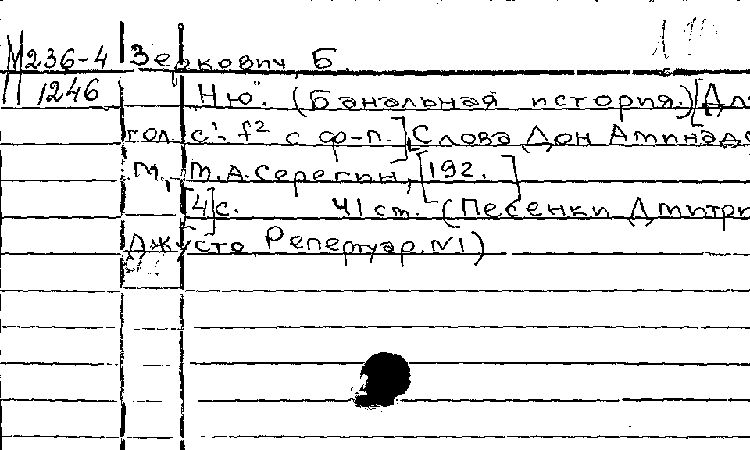 М236-4 Зеркович, Б.
П 1246 „Ню". (Банальная история.) [Для
гол. c¹- f² с ф-п.]. Слова Дон Аминадо
М., М.А. Серегин, [192.
[4]с. 41 ст. (Песенки Дмитри
Джусто. Репертуар. №1)